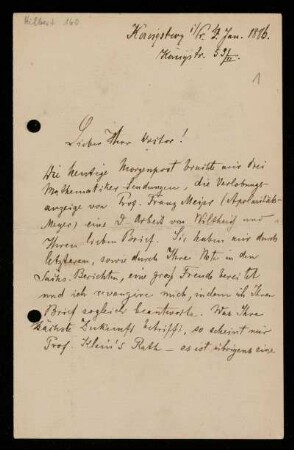 Hilbert 160
Königsberg i/Pr. 2 Jan. 1886.
Königstr. 53
1
Lieber Herr Doctor!
Die heutige Morgenpost brachte mir drei
Mathematiker-Sendungen, die Verlobungs-
anzeige von Prof. Franz Meyer (Apolarität-
Meyer) eine D. Arbeit von und
Ihren lieben Brief. Sie haben mir durch
letzteren, sowie durch Ihre Note in den
Sächs. Berichten, eine große Freude bereitet
und ich revangire mich, indem ich Ihren
Brief sogleich beantworte. Was Ihre
nächste Zukunft betrifft, so scheint mir
Prof. Klein's Rath – es ist übrigens eine